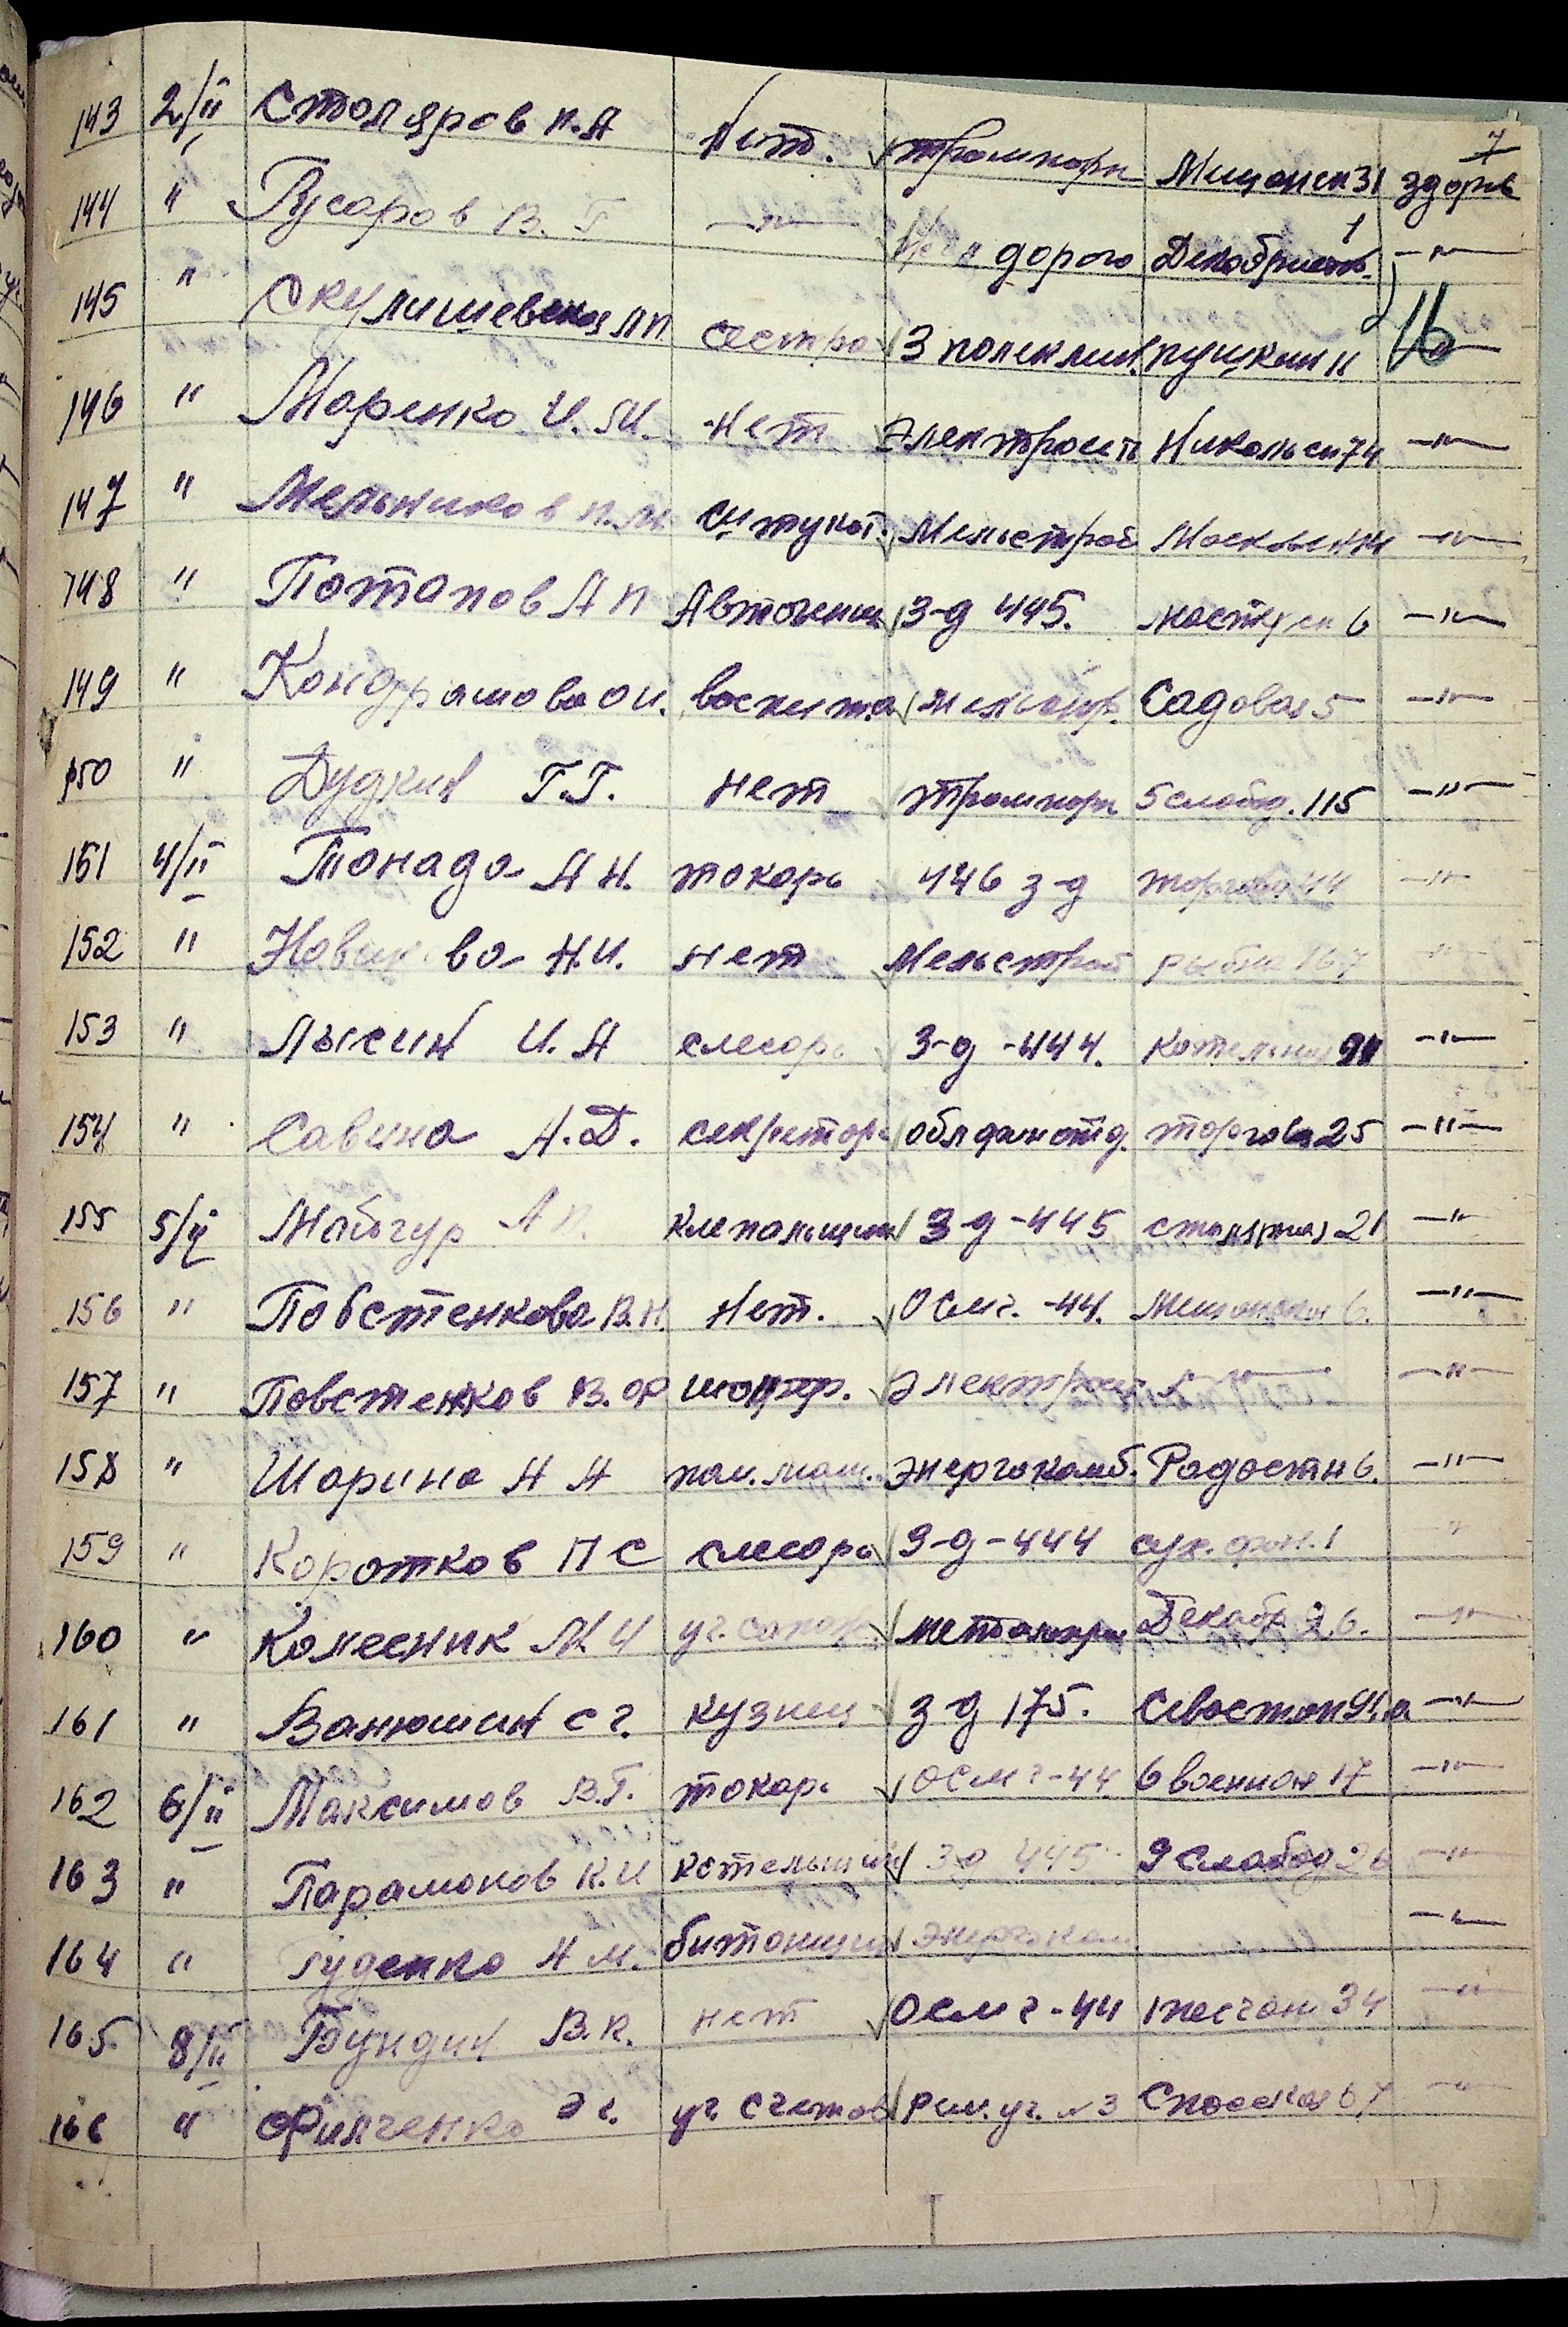 7
143 2/II Столяров п.А Нет. транспорн Мещанск 31 здоров
144 " Гусаров В. Г —"— дорога Декабрист 1 —"—
145 " Скулишевская А П сестра 3 поликлин. пушкин 11 16
146 " Моренко И. М. Нет Электросеть Никольск 74 —"—
147 " Мельников п.М. штукат. Мельстрой Московск —"—
148 " Потапов А П Автогенщ 3-д 445. 6 —"—
149 " О И. воспита Садовая 5 —"—
150 " Дудкин Г.Г. нет транспорн 5 слобод. 115 —"—
151 4/II Тонада А Н. токарь 446 з-д торговая 44 —"—
152 " Н.И. нет Мельстрой рыбна 167 —"—
153 " Лысин И. А слесарь 3-д -444. Котельная —"—
154 " Савина А. Д. секретарь торговая 25 —"—
155 5/II А п. Клепальщик 3-д -445 столярная 21 —"—
156 " Повстенкова В.Н. Нет. ОСМЧ. -44. Мещанская 6. —"—
157 " Повстенков В. Ф шофер. электрост —"— —"—
158 " Шарина А А пом. маш. энергокомб. Радостн 6. —"—
159 " Коротков П С слесарь 3-д -444 1 —"—
160 " Колесник М И уч. сапож. Декабр 26. —"—
161 " Ванюшин с г. кузнец з-д 175. Севастоп —"—
162 6/II Максимов В.Г. токарь ОСМЧ -44 6 военная 17 —"—
163 " Парамонов К.И котельщик 3-д 445 9 слобод 26 —"—
164 " Руденко А М. битонщик Энергоком —"—
165. 8/II Бундин В.К. нет ОСМЧ -44 песчан 34 —"—
166 " Филченко Э г. уч. счетов Рем. уч. №3 Спасская 67 —"—